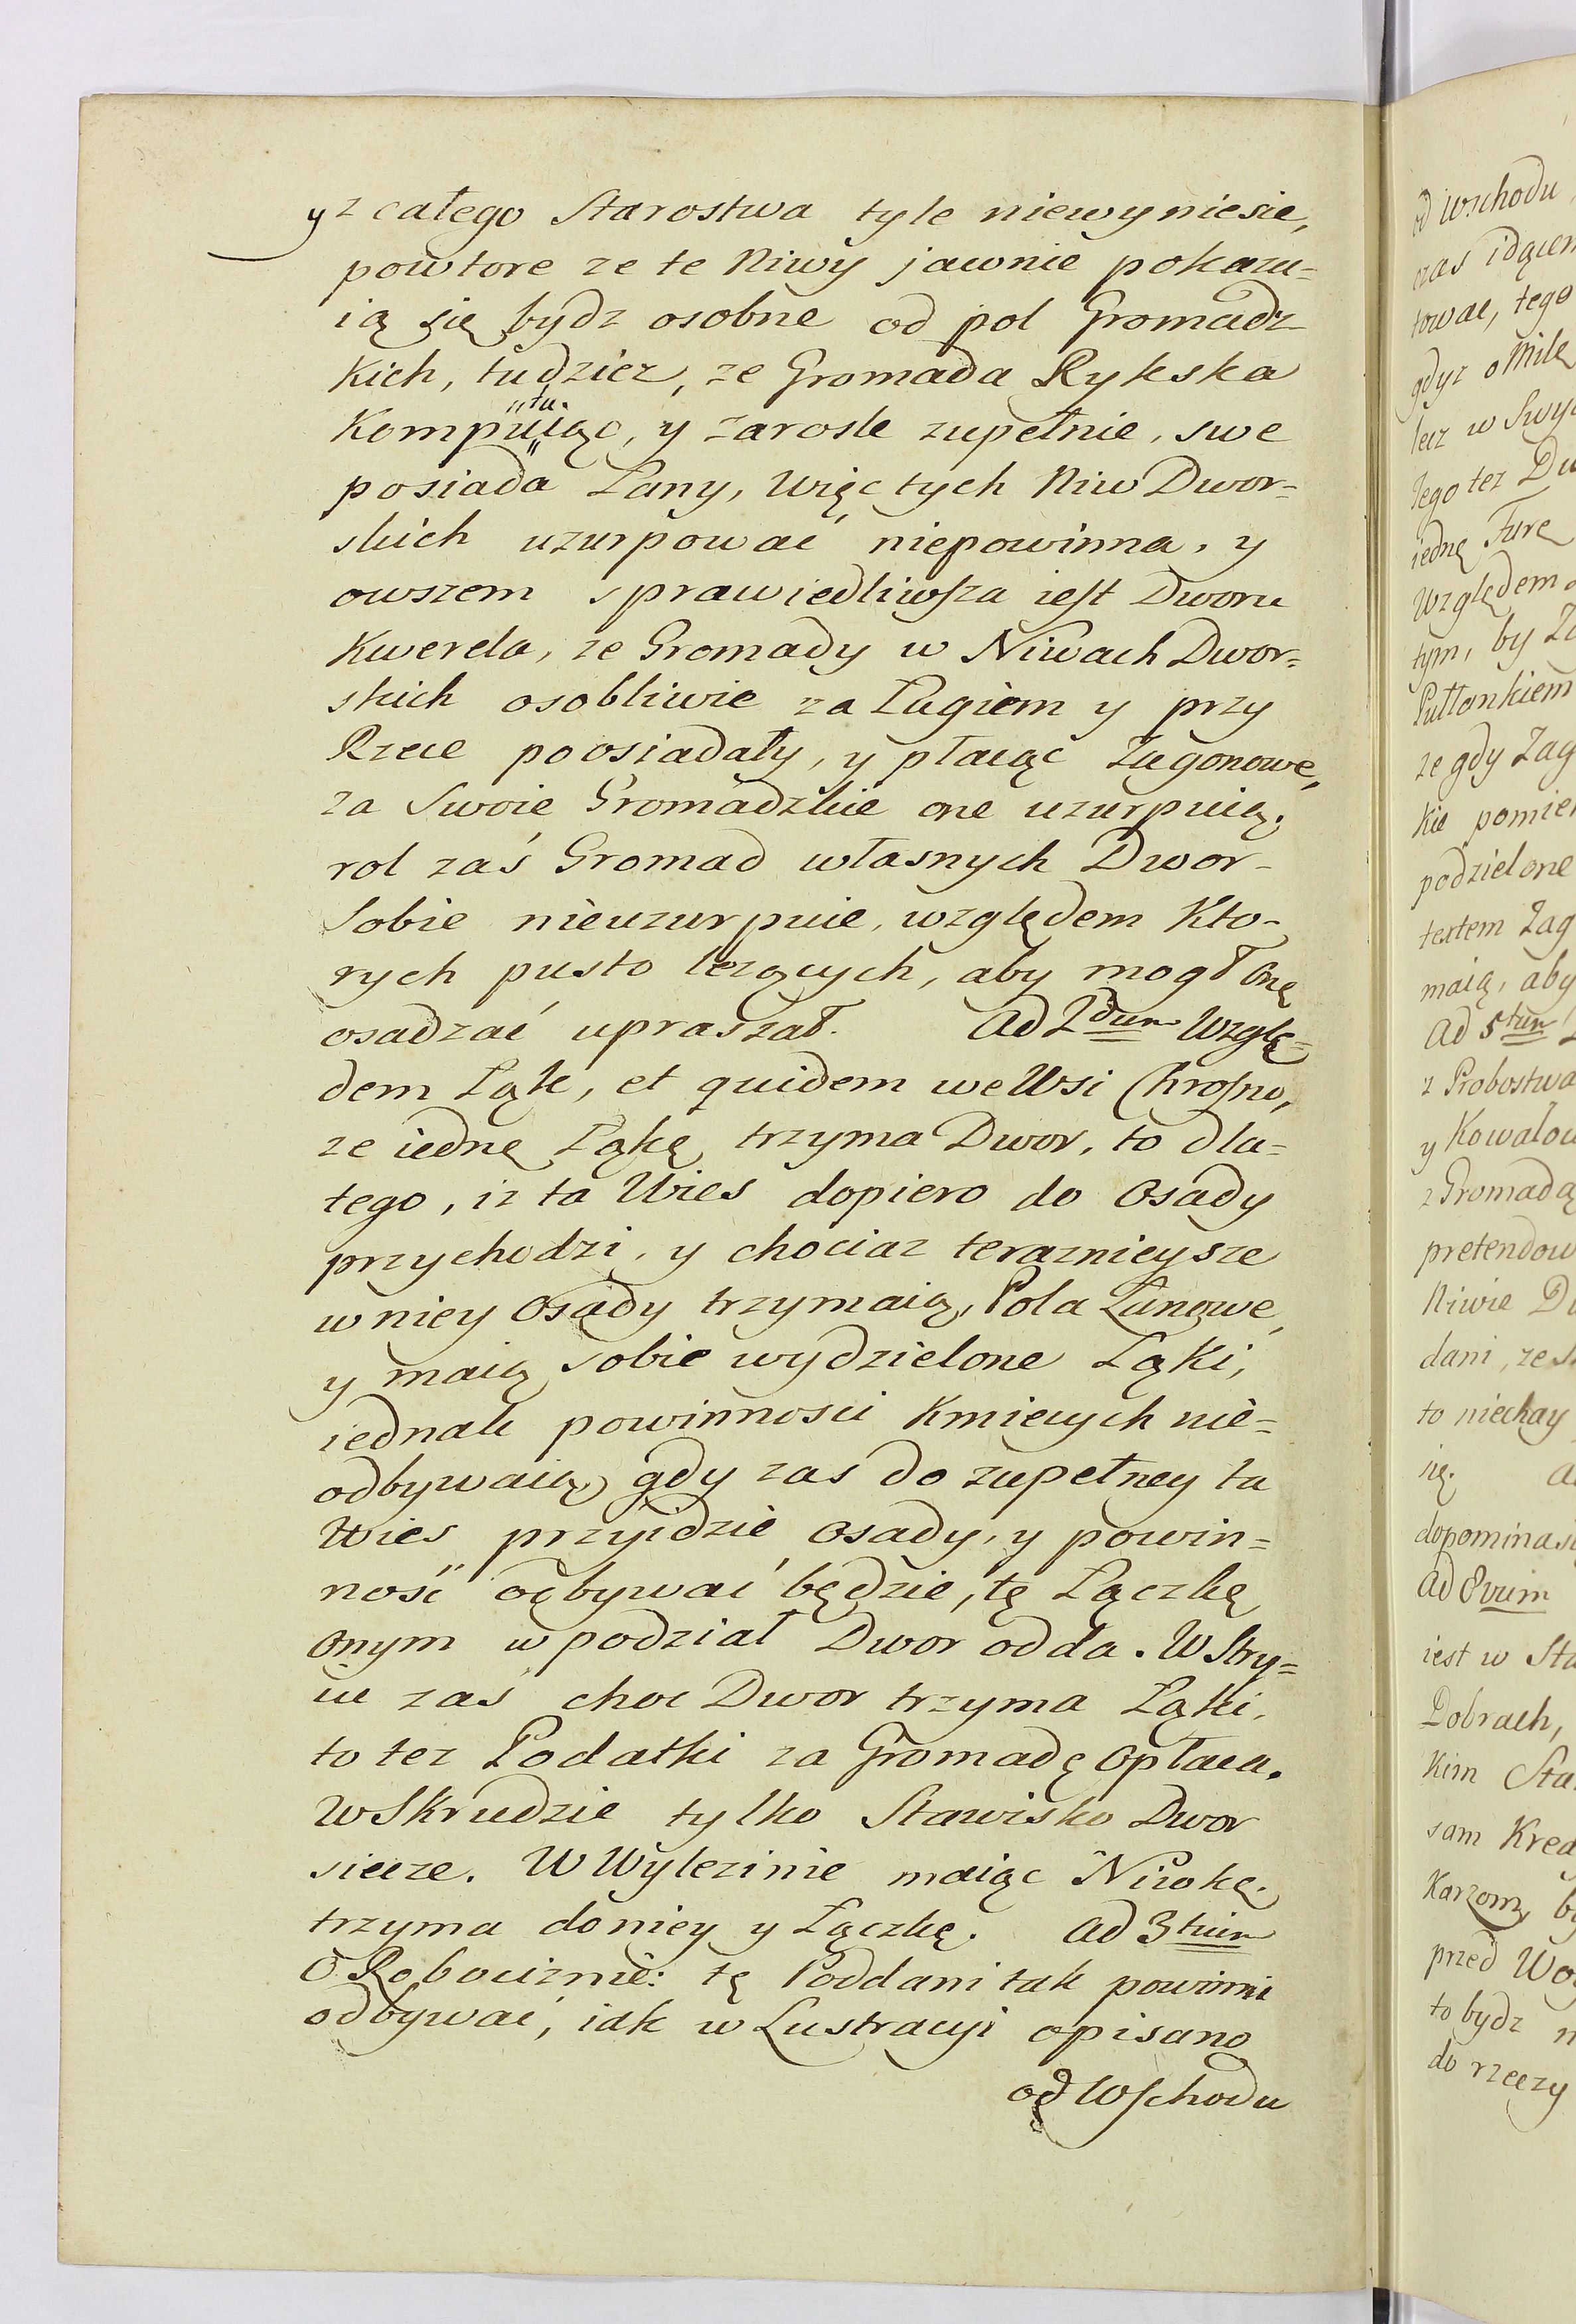 y z całego Starostwa tyle niewyniesie,
powtore ze te Niwy jawnie pokazu=
ią się bydz osobne od pol Gromadz-
kich, tudziez, ze Gromada Rykska
Kompu"tu"iąc, y zarosle zupełnie, swe
posiada Łany, więc tych Niw Dwor=
skich uzurpować niepowinna, y
owszem sprawiedliwsza iest Dworu
Kwerela, ze Gromady w Niwach Dwor=
skich osobliwie za Ługiem y przy
Rzece poosiadały, y płacąc Zagonowe,
za Swoie Gromadzkie one uzurpuią,
rol zaś Gromad własnych Dwor-
Sobie nieuzurpuie, względem Kto-
rych pusto lezących, aby mogł one
osadzać upraszał. Ad 2dum Wzglę=
dem Łąk, et quidem we Wsi Chrosno,
ze iednę Łąkę trzyma Dwor, to dla=
tego, iz ta Wies dopiero do Osady
przychodzi, y chociaz teraznieysze
w niey Osady trzymaią, Pola Łanowe,
y maią sobie wydzielone Łąki,
iednak powinnosci Kmiecych nie=
odbywaią, gdy zas do zupełney ta
Wies przyidzie Osady, y powin=
ność odbywać będzie, tę Łączkę
onym w podział Dwor odda. W Stry=
iu zaś choc Dwor trzyma Łąki,
to tez Podatki za Gromadę opłaca.
W Skrudzie tylko Stawisko Dwor
siecze. W Wylezinie maiąc Niwkę,
trzyma do niey y Łączkę. Ad 3tium
O Robociznie: tę Poddani tak powinni
odbywać, iak w Lustracyi opisano
od Wschodu
od Wschodu
tować, tego
gdyz o Milę
lecz w Swy
iednę Furę
Względem
tym, by
ze gdy Zag
podzielone
maią, aby
Ad 5tum
z Probostwa
z Gromadą
pretendow
Niwie
dani, ze
to niechay
się.
Ad 8vum
iest w Sta
Dobrach,
kim Sta
sam
przed
to bydz
do rzeczy